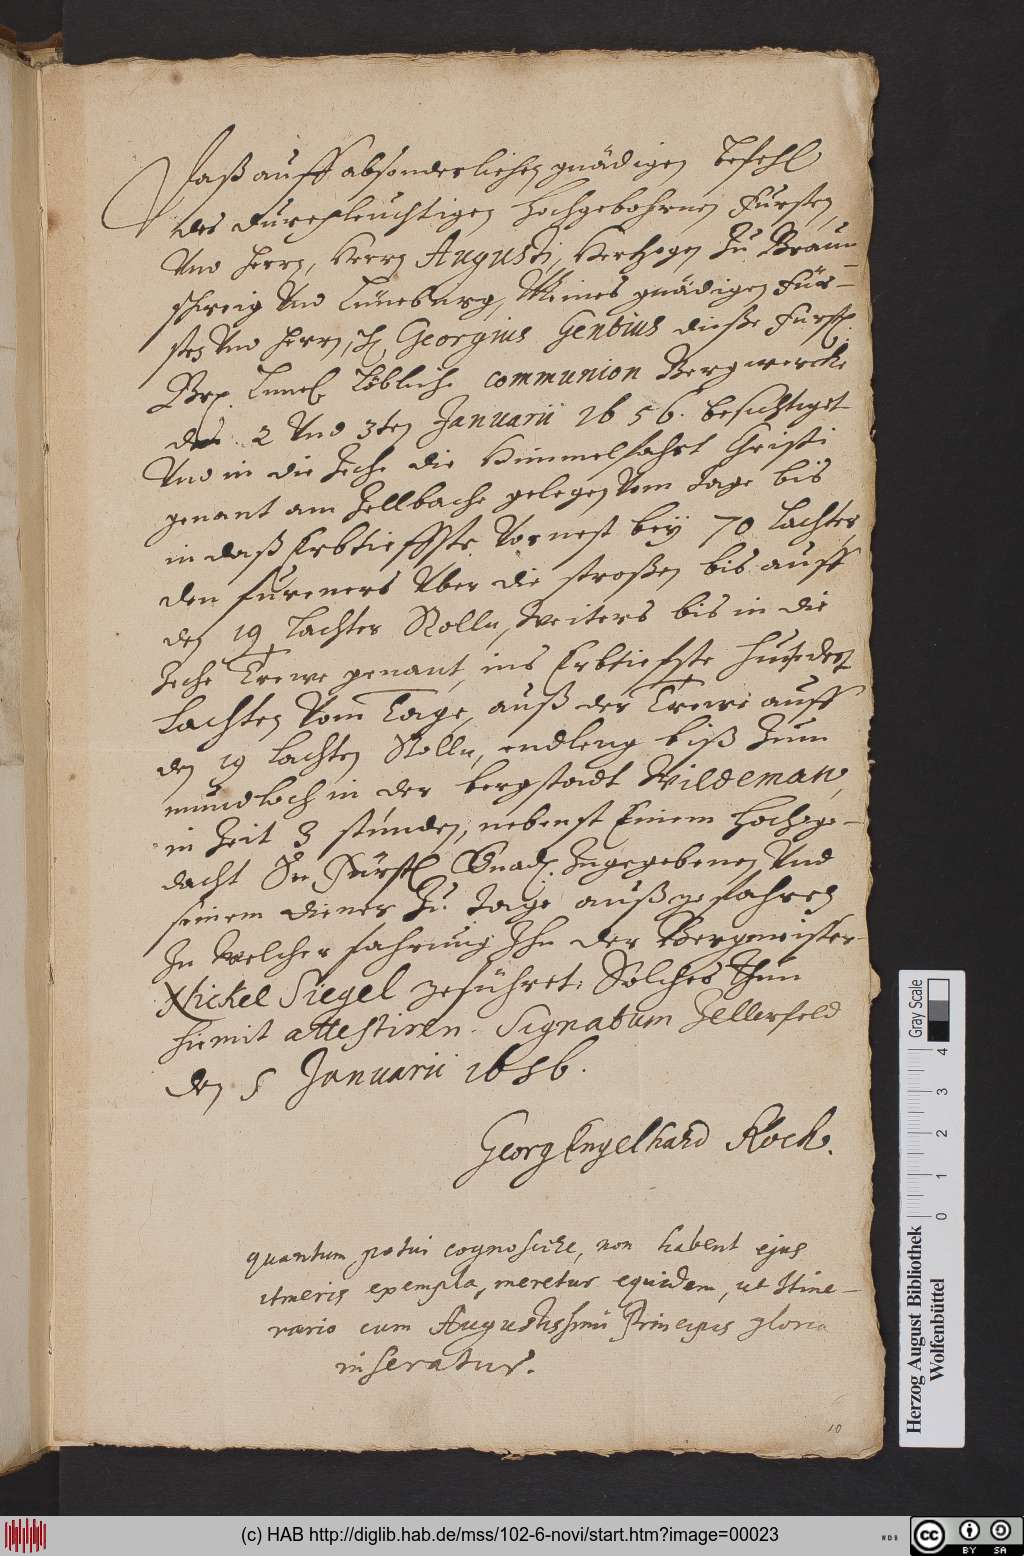 Daß auff absonderlichen gnädigen befehl
des durchleuchtigen Hochgebohrnen Fursten
Und Herrn, Herrn Augusti, Hertzogen Zu Braun
schweig Und Lüneburg, Meines gnädigen Für-
sten Und Herrn, H. Georgius Gentius dieße Furstl.
Löbliche communion Bergwercke
den 2 Und 3ten Januarii 1656. besichtiget
Und in die Zeche die Himmelfahrt Christi
genant am Zellbache gelegen Vom Tage bis
in daß Erbtieffste bey 70 Lachter
Uber die stroßen bis auff
den 19 Lachter Stolln, Weiters bis in die
Zeche Trewe genant, ins Erbtiefste
Lachter Vom Tage, auß der Trewe auff
den 19 Lachter Stolln, endleng biß Zum
mundloch in der bergstadt Wildeman,
in Zeit 3 stunden, nebenst Einem Hochge-
dacht Sr. Fürstl. Gnad. Zugegebenen Und
seinem diener Zu Tage außgefahren
In Welcher fahrung Ihn der Bergmeister
Nickel Siegel geführet: Solches Thun
hiemit attestiren. Signatum Zellerfeld
den 5 Januarii 1656.
Georg Engelhard Röck.
quantum potui cognoscere, non habent ejus
itineris exempla, meretur equidem, ut Itine-
rario cum Augustissimi Principis gloria
inseratur.
10
Herzog August Bibliothek
Wolfenbüttel
0 1 2 3 4
Gray Scale
(c) HAB http://diglib.hab.de/mss/102-6-novi/start.htm?image=00023
WDB
cc BY SA